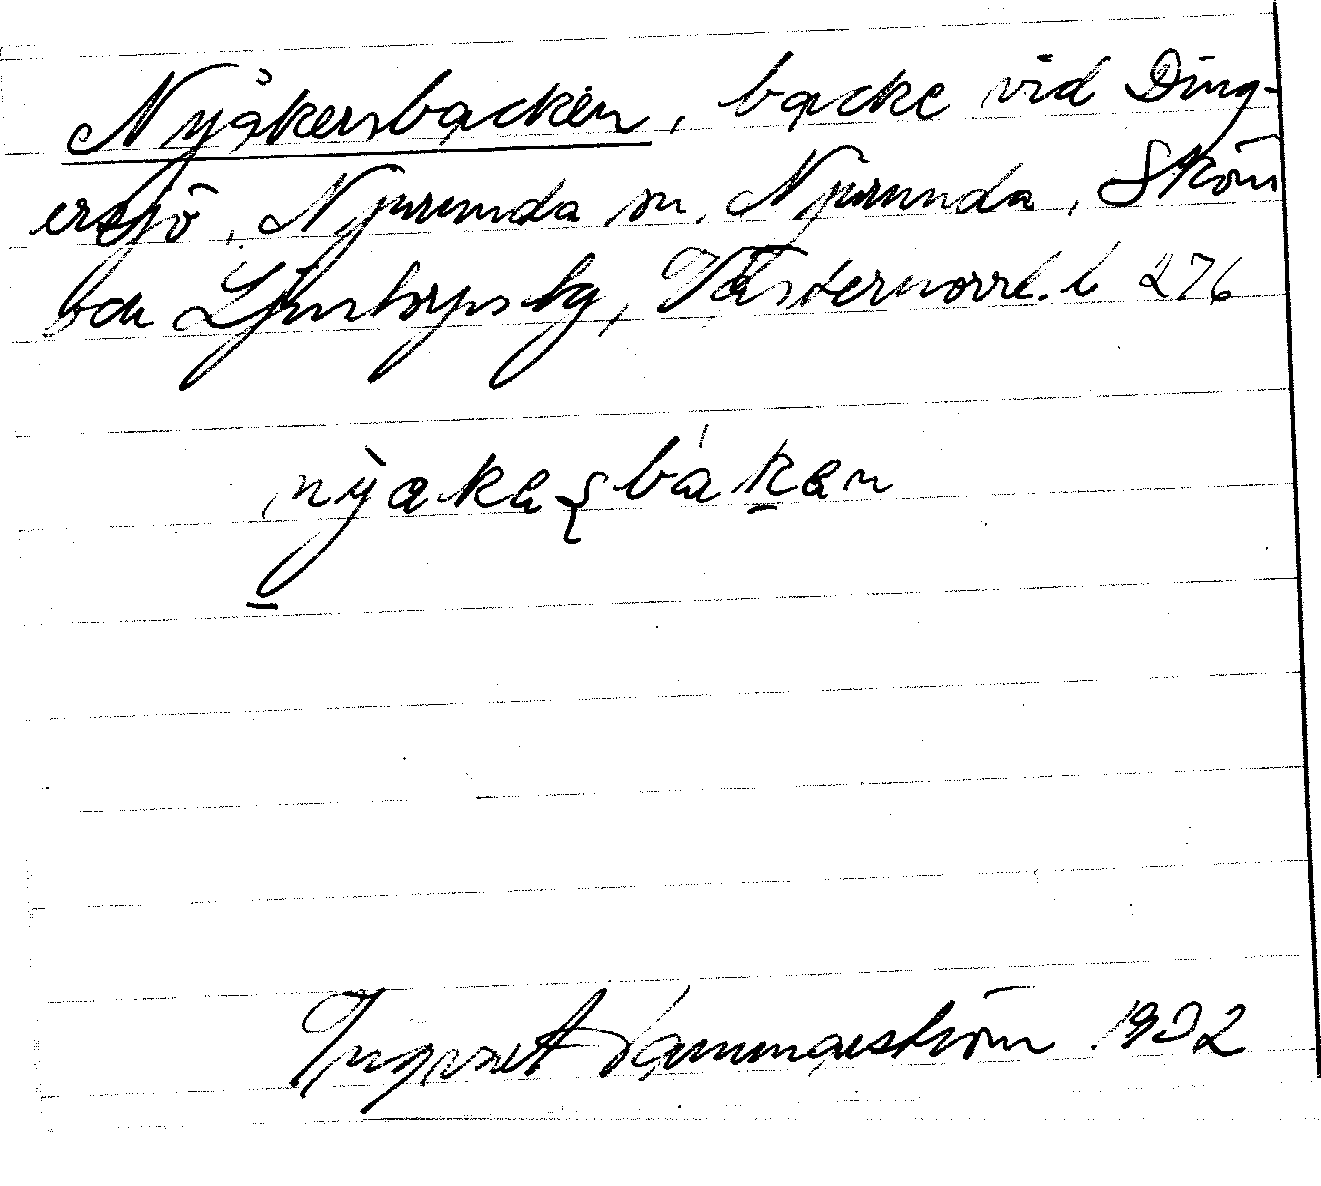 Nyåkersbacken, backe vid Ding-
ersjö, Njurunda sn, Njurunda, Sköns
bck Ljustorps tg, Västernorrl. l 276
nỳakaʂbákan
Ingvart Hammarström 1932